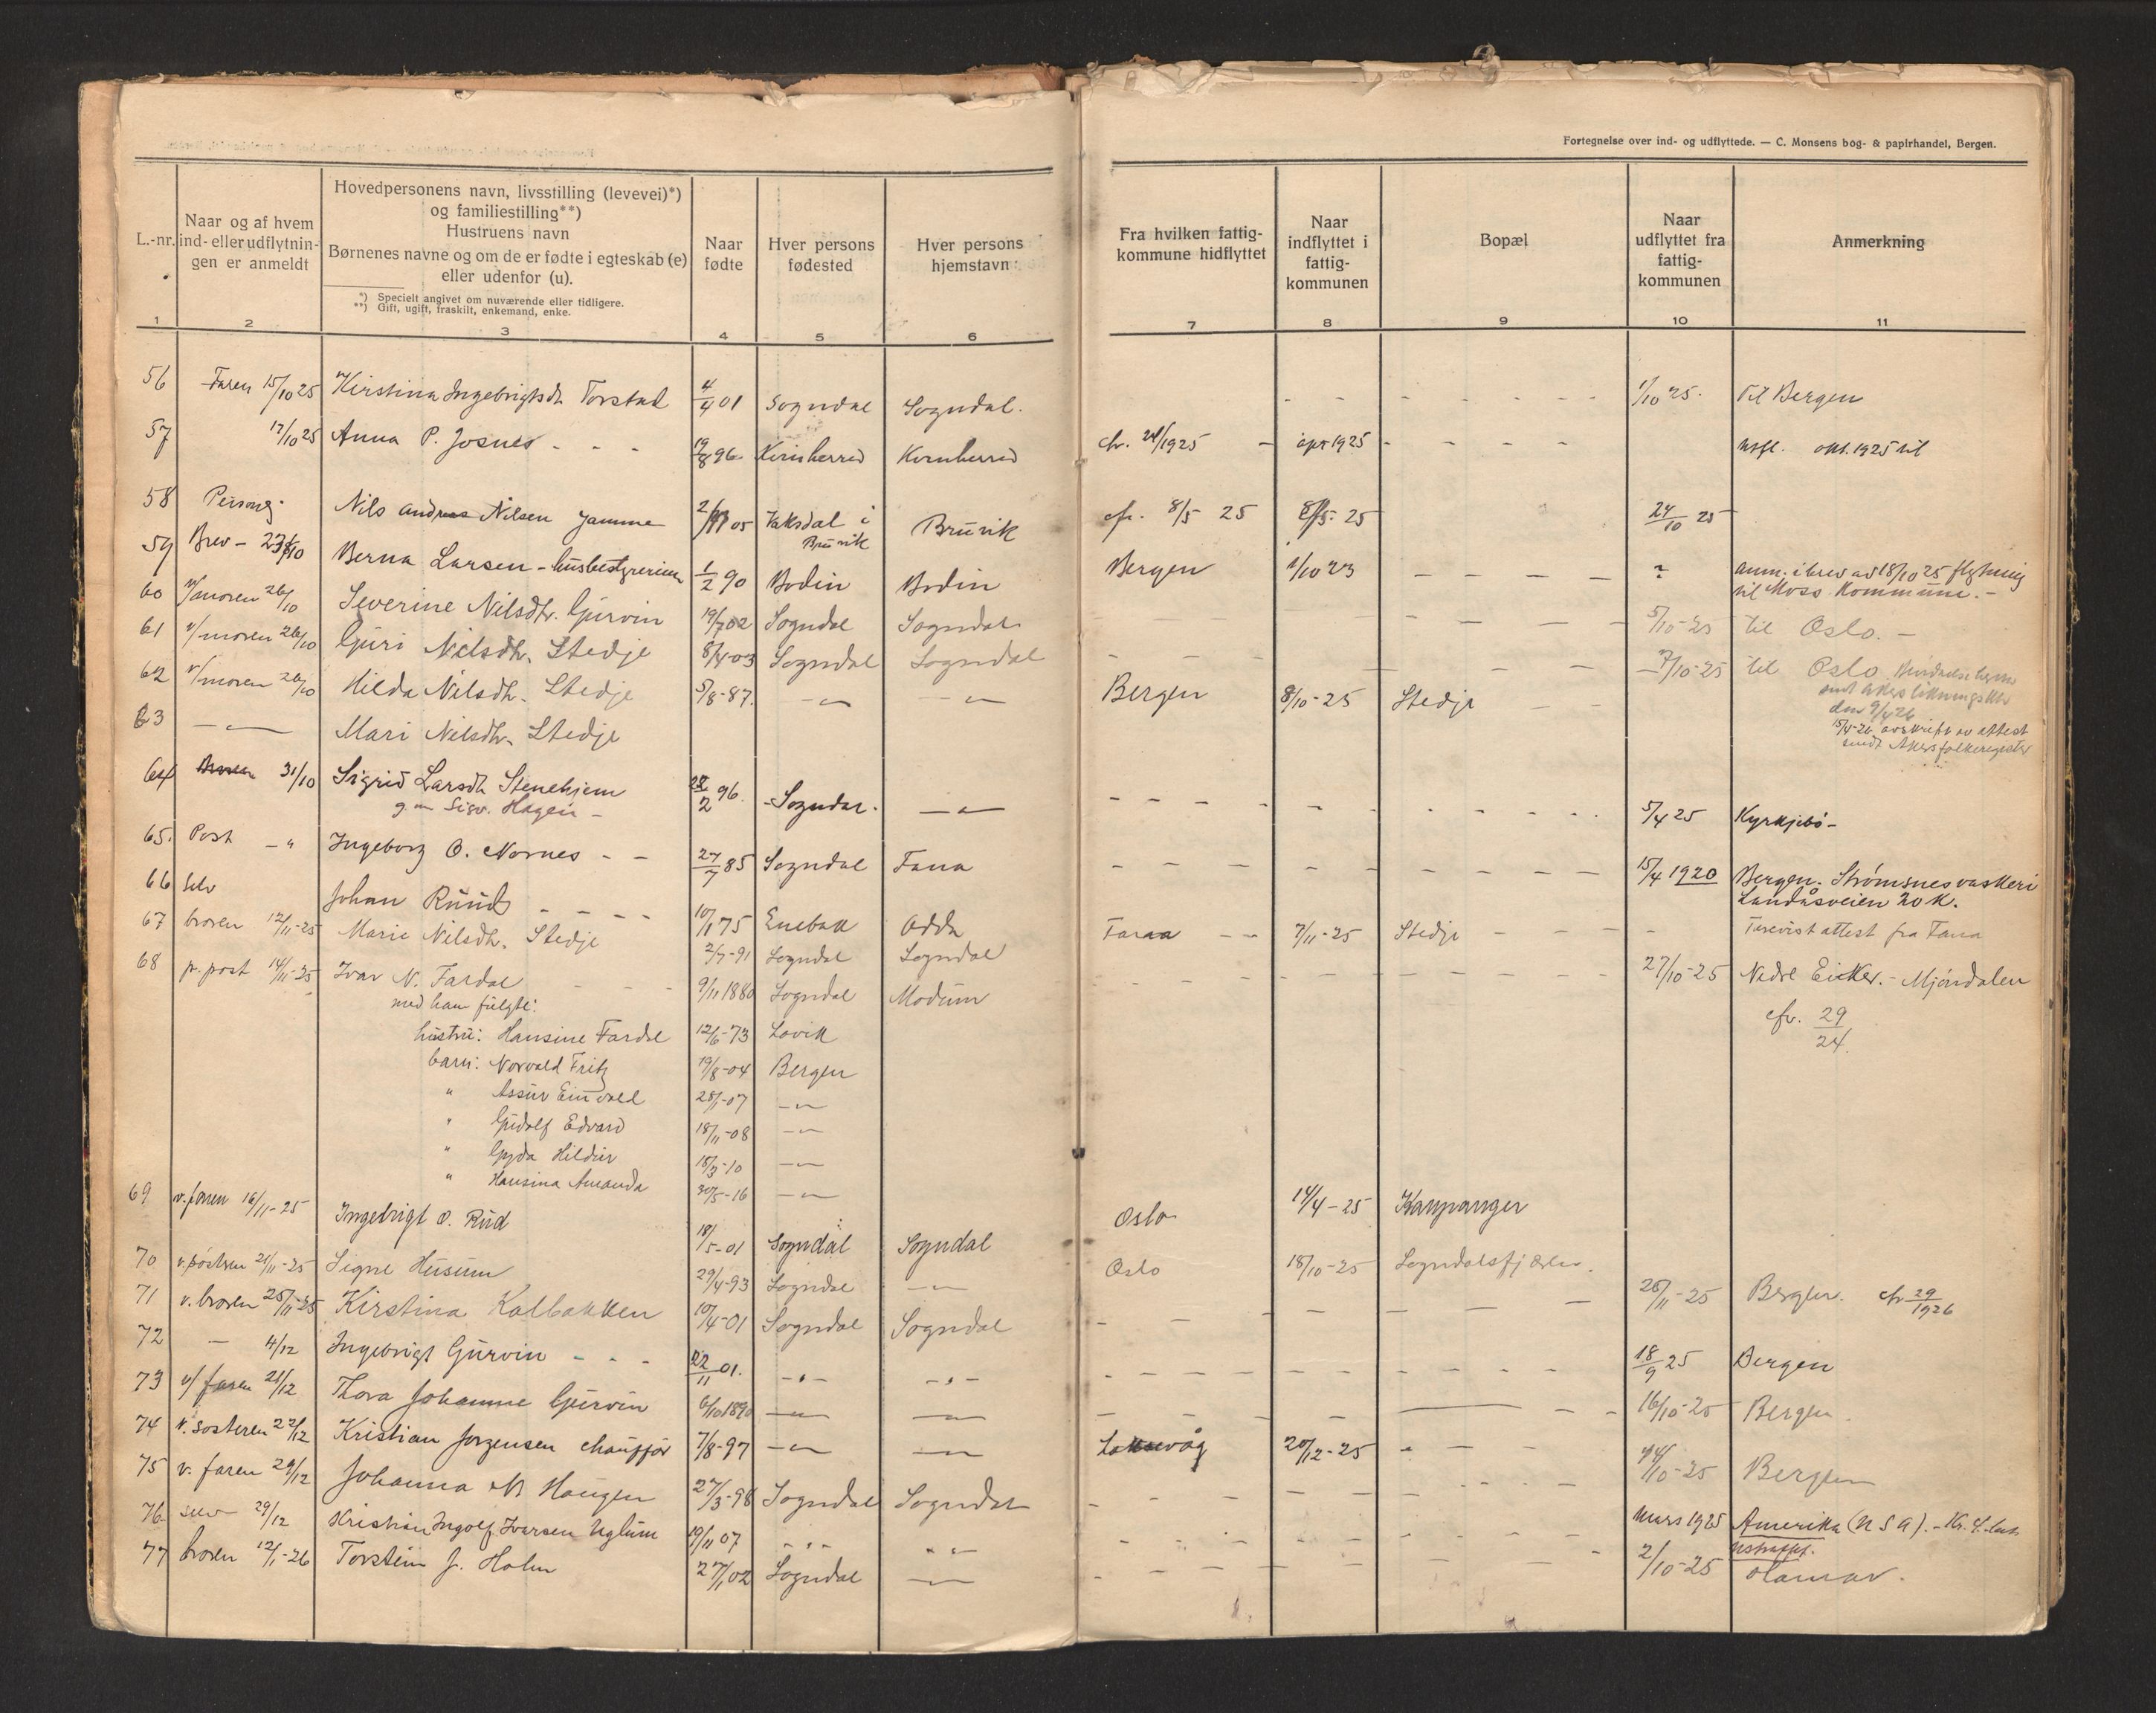 Fortegnelse over ind- og udflyttede. — C. Monsens bog- & papirhandel, Bergen.
L.-nr.
Naar og af hvem ind- eller udflytnin-gen er anmeldt
Hovedpersonens navn, livsstilling (levevei)*)
og familiestilling**)
Hustruens navn
Børnenes navne og om de er fødte i egteskab (e)
eller udenfor (u).
*) Specielt angivet om nuværende eller tidligere.
**) Gift, ugift, fraskilt, enkemand, enke.
Naar fødte
Hver persons fødested
Hver persons hjemstavn
Fra hvilken fattig-kommune hidflyttet
Naar indflyttet i fattig-kommunen
Bopæl
Naar udflyttet fra fattig-kommunen
Anmerkning
1 2 3 4 5 6 7 8 9 10 11
56 Faren 15/10 25 Kirstina Ingebrigtsdh Torstad 4/4 01 Sogndal Sogndal. - - - - - - 1/10 25. Til Bergen
57 17/10 25 Anna P. Josnes - - - 19/8 96 Kinsherred Kvinherred cfr. 24/1925 - apr 1925 - - - - Utfl. okt. 1925 til
58 Personl. Nils Andreas Nilsen Jamne 2/11 05 Vaksdal i Bruvik Bruvik cfr. 8/5 25 8/5 25 24/10 25
59 Brev - 23/10 Berna Larsen - husbestyrerinne 1/2 90 Bodin Bodin Bergen 1/10 23 - - - - ? anm. i brev av 18/10 25 flytning
til Moss Kommune. -
60 v/moren 26/10 Severine Nilsdtr. Gurvin 19/7 02 Sogndal Sogndal - - - - 5/10-25 til Oslo. -
61 v/moren 26/10 Guri Nilsdh. Stedje 8/4-03 Sogndal Sogndal - - - - 7/10-25 til Oslo
62 v/moren 26/10 Hilda Nilsdh. Stedje 5/8-87. -"- -"- Bergen 8/10-25 Stedje - -
den 9/4 26
15/4-26 avskrift av attest
sendt Akers folkeregister
63 -"- Mari Nilsdh. Stedje
64 31/10 Sigrid Larsdh Stenehjem 28/2 96. Sogndal. -"- - - - - 5/4 25 Kyrkjebø -
g. m Sigv. Hagen -
65. Post -"- Ingeborg O. Nornes - - 27/7 85 Sogndal Fana - - - - 15/4 1920 Bergen. Strømsnes vaskeri
Landåsveien 20 K.
66 Selv Johan Ruud - - - - 10/1 75 Enebak Odda
67 broren 12/11-25 Marie Nilsdh. Stedje 2/7-91 Sogndal Sogndal Fana - - 7/11-25 Stedje - - - - Forevist attest fra Fana
68 p. post 14/11-25 Ivar N. Fardal - - - 9/11 1880 Sogndal Modum - - - - 27/10-25 Nedre Eiker. - Mjøndalen
med ham fulgte: cfr. 29/24.
hustru: Hansine Fardal 12/6-73 Lavik
barn: Norvald Fritz 19/8-04 Bergen
" Assur Einvald 28/1-07 -"-
" Gudolf Edvard 18/11-08 -"-
" Gyda Hildur 18/3-10 -"-
" Hansina Amanda 30/5-16 -"-
69 v. faren 16/11-25 Ingebrigt O. Rud 18/5-01 Sogndal Sogndal Oslo 14/4-25 Kaupanger
70 v. søstren 21/11-25 Signe Husum 29/4-93 Sogndal -"- Oslo 18/10-25 Sogndalsfjøren.
71 v. broren 25/11-25 Kirstina Kalbakken 10/4-01 Sogndal Sogndal - - - - 28/11-25 Bergen. cfr 29/1926
72 - 4/12 Ingebrigt Gurvin - - - 22/11 01. -"- -"- - - - - 18/9 25 Bergen
73 v/ faren 21/12 Thora Johanne Gurvin 6/10 1890 -"- -"- - - - - 16/10-25 Bergen.
74 v. søsteren 22/12 Kristian Jørgensen chauffør 7/8-97 -"- -"- Laksevåg 20/12-25 - - -
75 v. faren 29/12 Johanna M Haugen 27/3-98 Sogndal Sogndal - - - - 14/10-25 Bergen
76. selv 29/12 Kristian Ingolf Ivarsen Uglum 19/11 07 -"- -"- - - - - Mars 1925 Amerika (U S A). -
77 broren 12/1-26 Torstein J. Holm 27/1 02 Sogndal -"- - - - - 2/10-25 Hamar.